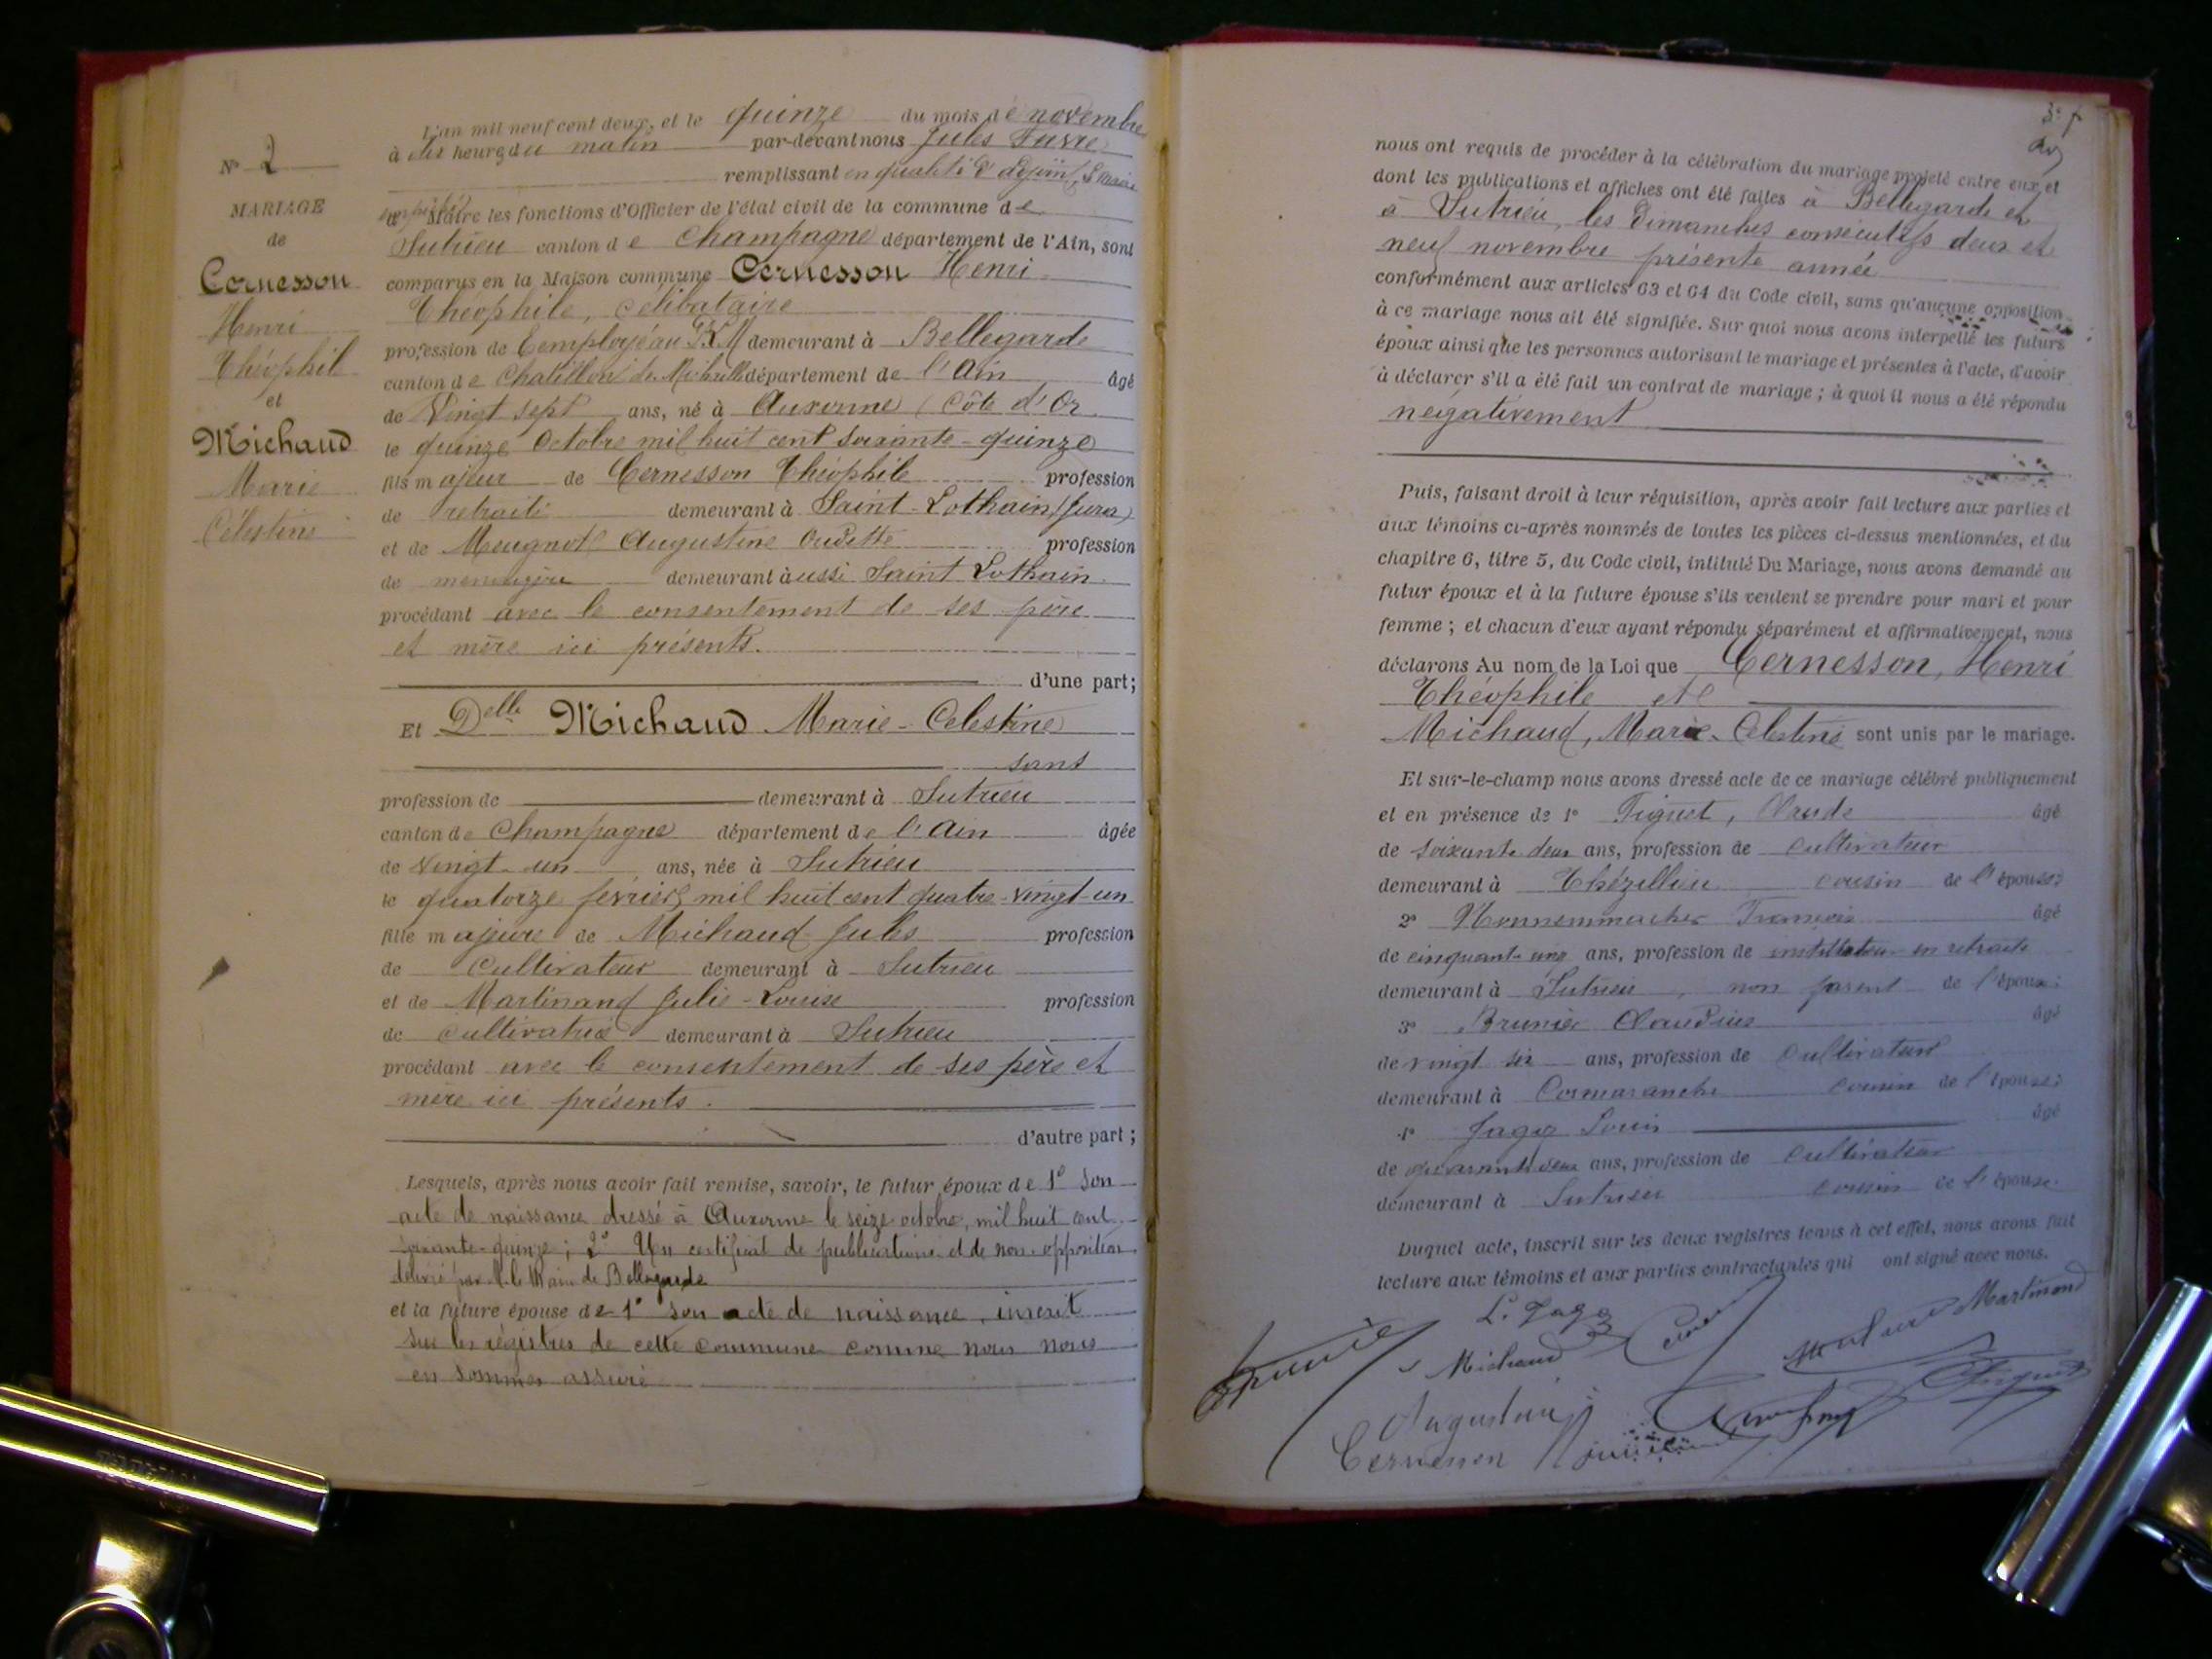 N° 2
MARIAGE
de
Cernesson
Henri
Théophil
et
Michaud
Marie
Célestine
L'an mil neuf cent deux, et le quinze du mois de novembre
à dix heures du matin par-devant nous Jules Favre
remplissant en qualité d'adjoint, le maire
empêché Maire les fonctions d'Officier de l'état civil de la commune de
Sutrieu canton de Champagne département de l'Ain, sont
comparus en la Maison commune Cernesson Henri
Théophile, célibataire
profession de Employé au P.L.M demeurant à Bellegarde
canton de Chatillon de Michaille département de l'Ain âgé
de Vingt sept ans, né à Auxonne (Côte d'Or
le quinze Octobre mil huit cent soixante-quinze
fils majeur de Cernesson Théophile profession
de retraité demeurant à Saint-Lothain (Jura)
et de Meugnot Augustine Oudette profession
de ménagère demeurant aussi Saint Lothain
procédant avec le consentement de ses père
et mère ici présents.
d'une part;
Et Delle Michaud Marie-Celestine
sans
profession de demeurant à Sutrieu
canton de Champagne département de l'Ain âgée
de vingt-un ans, née à Sutrieu
le quatorze février mil huit cent quatre-vingt-un
fille majeure de Michaud Jules profession
de Cultivateur demeurant à Sutrieu
et de Martinand Julie-Louise profession
de cultivatrice demeurant à Sutrieu
procédant avec le consentement de ses père et
mère ici présents.
d'autre part;
Lesquels, après nous avoir fait remise, savoir, le futur époux de 1° Son
acte de naissance dressé à Auxonne le seize octobre, mil huit cent
soixante-quinze; 2° Un certificat de publications et de non-opposition
délivré par M. le Maire de Bellegarde
et la future épouse de 1° son acte de naissance, inscrit
sur les régistres de cette commune comme nous nous
en sommes assuré
nous ont requis de procéder à la célébration du mariage projeté entre eux et
dont les publications et affiches ont été faites à Bellegarde et
à Sutrieu, les Dimanches consécutifs deux et
neuf novembre présente année
conformément aux articles 63 et 64 du Code civil, sans qu'aucune opposition
à ce mariage nous ait été signifiée. Sur quoi nous avons interpellé les futurs
époux ainsi que les personnes autorisant le mariage et présentes à l'acte, d'avoir
à déclarer s'il a été fait un contrat de mariage; à quoi il nous a été répondu
négativement
Puis, faisant droit à leur réquisition, après avoir fait lecture aux parties et
aux témoins ci-après nommés de toutes les pièces ci-dessus mentionnées, et du
chapitre 6, titre 5, du Code civil, intitulé Du Mariage, nous avons demandé au
futur époux et à la future épouse s'ils veulent se prendre pour mari et pour
femme; et chacun d'eux ayant répondu séparément et affirmativement, nous
déclarons Au nom de la Loi que Cernesson, Henri
Théophile et
Michaud, Marie-Celestine sont unis par le mariage.
Et sur-le-champ nous avons dressé acte de ce mariage célébré publiquement
et en présence de 1° Figuet, Claude âgé
de soixante deux ans, profession de cultivateur
demeurant à Thézillieu cousin de l'épouse;
2° François âgé
de cinquante cinq ans, profession de instituteur en retraite
demeurant à Sutrieu, non parent de l'époux;
3° Brunier Claudius âgé
de vingt six ans, profession de cultivateur
demeurant à Cormaranche cousin de l'épouse;
4° Jago Louis âgé
de quarante deux ans, profession de cultivateur
demeurant à Sutrieu cousin de l'épouse.
Duquel acte, inscrit sur les deux registres tenus à cet effet, nous avons fait
lecture aux témoins et aux parties contractantes qui ont signé avec nous.
L. Jago
Michaud
Martinand
Augustine
Cernesson